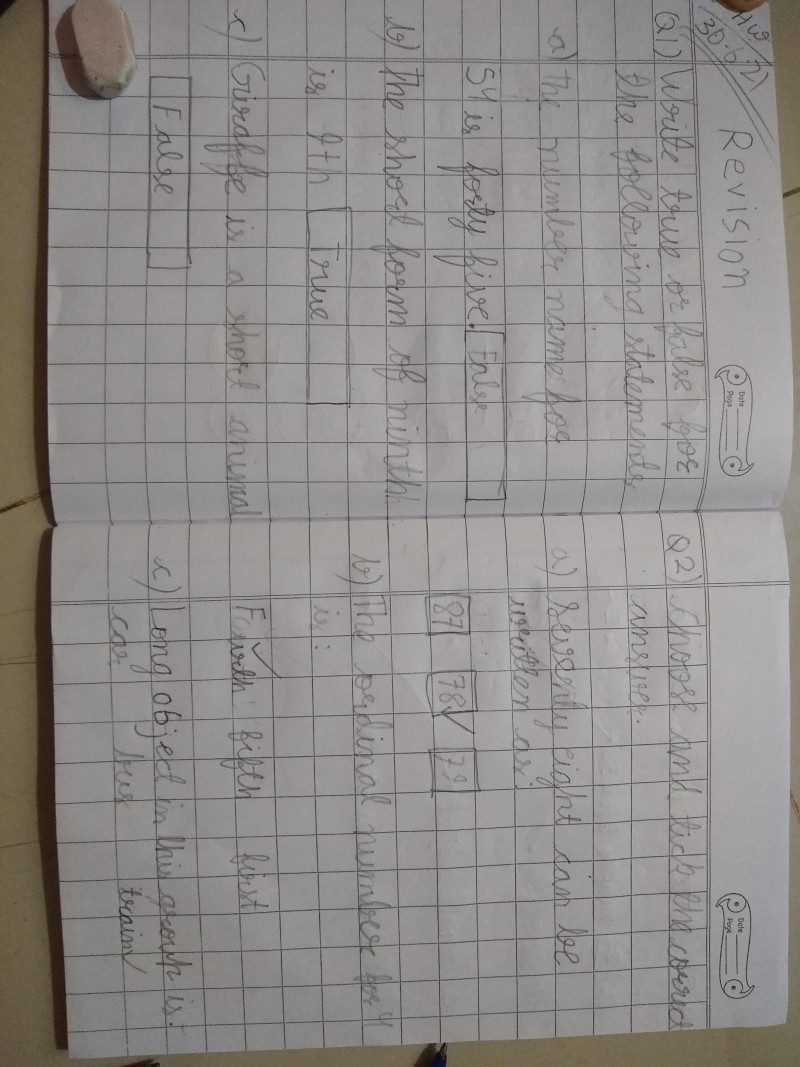 HW
30.6.21
Revision
Date
Page
Q1) Write true or false for
the following statements
a) The number name for
54 is forty five. False
b) The short form of ninth
is 9th True
c) Giraffe is a short animal
False
Date
Page
Q2) Choose and tick the correct
answer.
a) Seventy eight can be
written as:
87 78✓ 79
b) The ordinal number for 4
is:
Fourth✓ fifth first
c) Long object in this group is:
car bus train✓